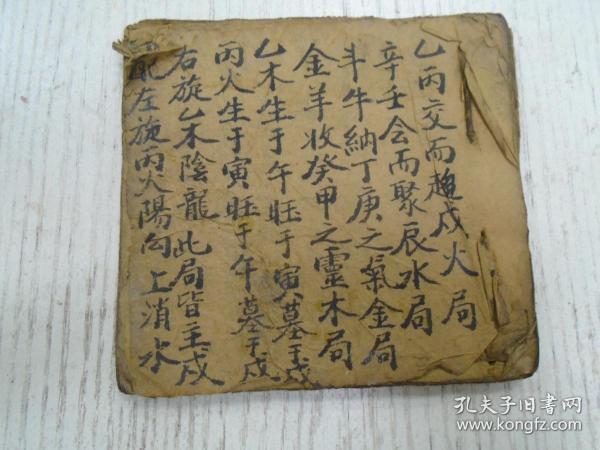 乙丙交而趨戍火局
辛壬会而聚辰水局
斗牛納丁庚之氣金局
金羊收癸甲之靈木局
乙木生于午旺于寅墓于戍
丙火生于寅旺于午墓于戍
右旋乙木陰龍此局皆主戍
左旋丙火陽勾上消水
孔夫子旧书网
www.kongfz.com